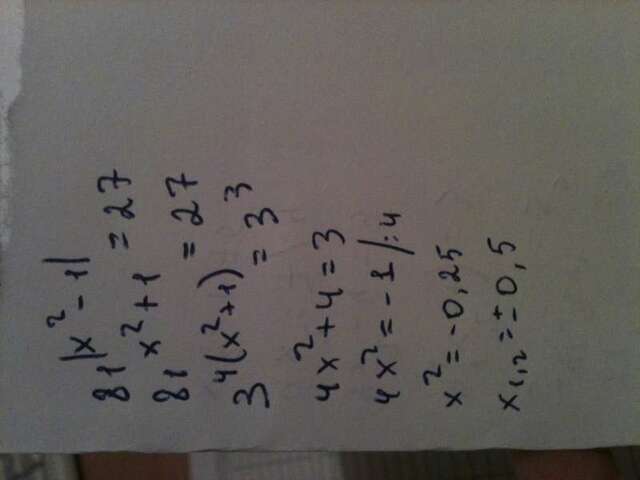 81^|x²-1| = 27
81^x²+1 = 27
3^4(x²+1) = 3³
4x²+4=3
4x²=-1 /:4
x²=-0,25
x₁,₂=±0,5